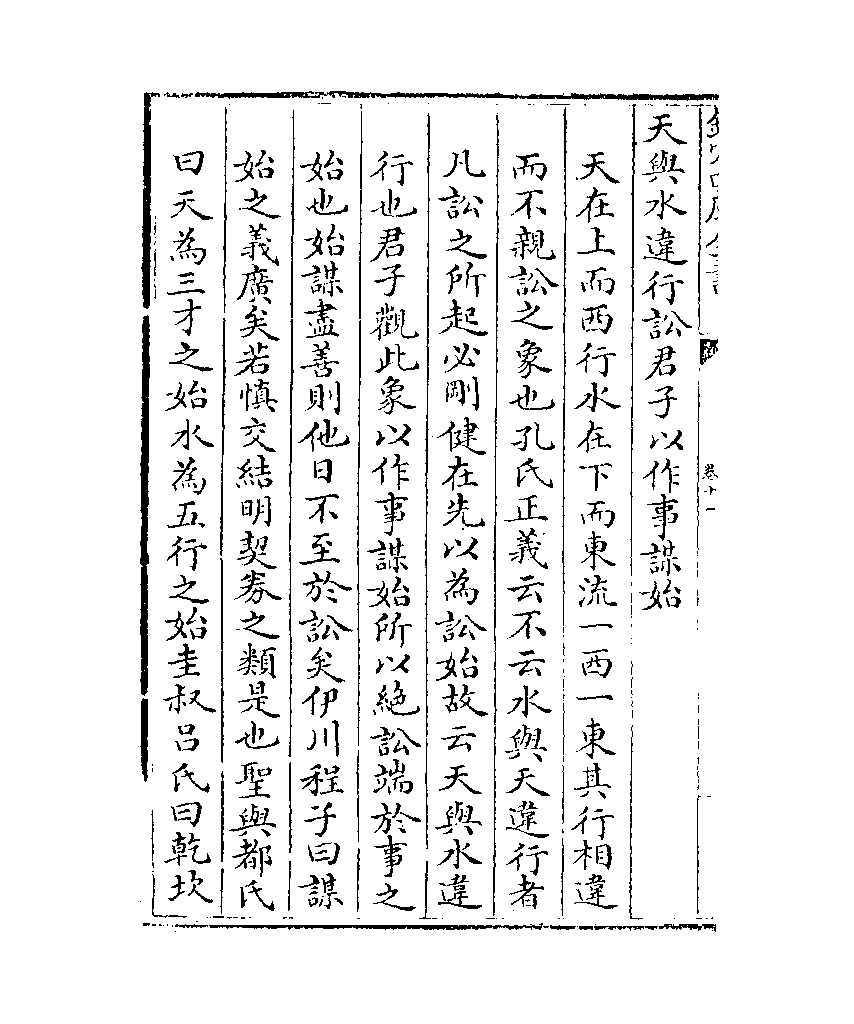 天與水違行訟君子以作事謀始
天在上而西行水在下而東流一西一東其行相違
而不親訟之象也孔氏正義云不云水與天違行者
凡訟之所起必剛健在先以為訟始故云天與水違
行也君子觀此象以作事謀始所以絶訟端於事之
始也始謀盡善則他日不至於訟矣伊川程子曰謀
始之義廣矣若慎交結明契券之類是也聖與都氏
曰天為三才之始水為五行之始圭叔吕氏曰乾坎
卷十一